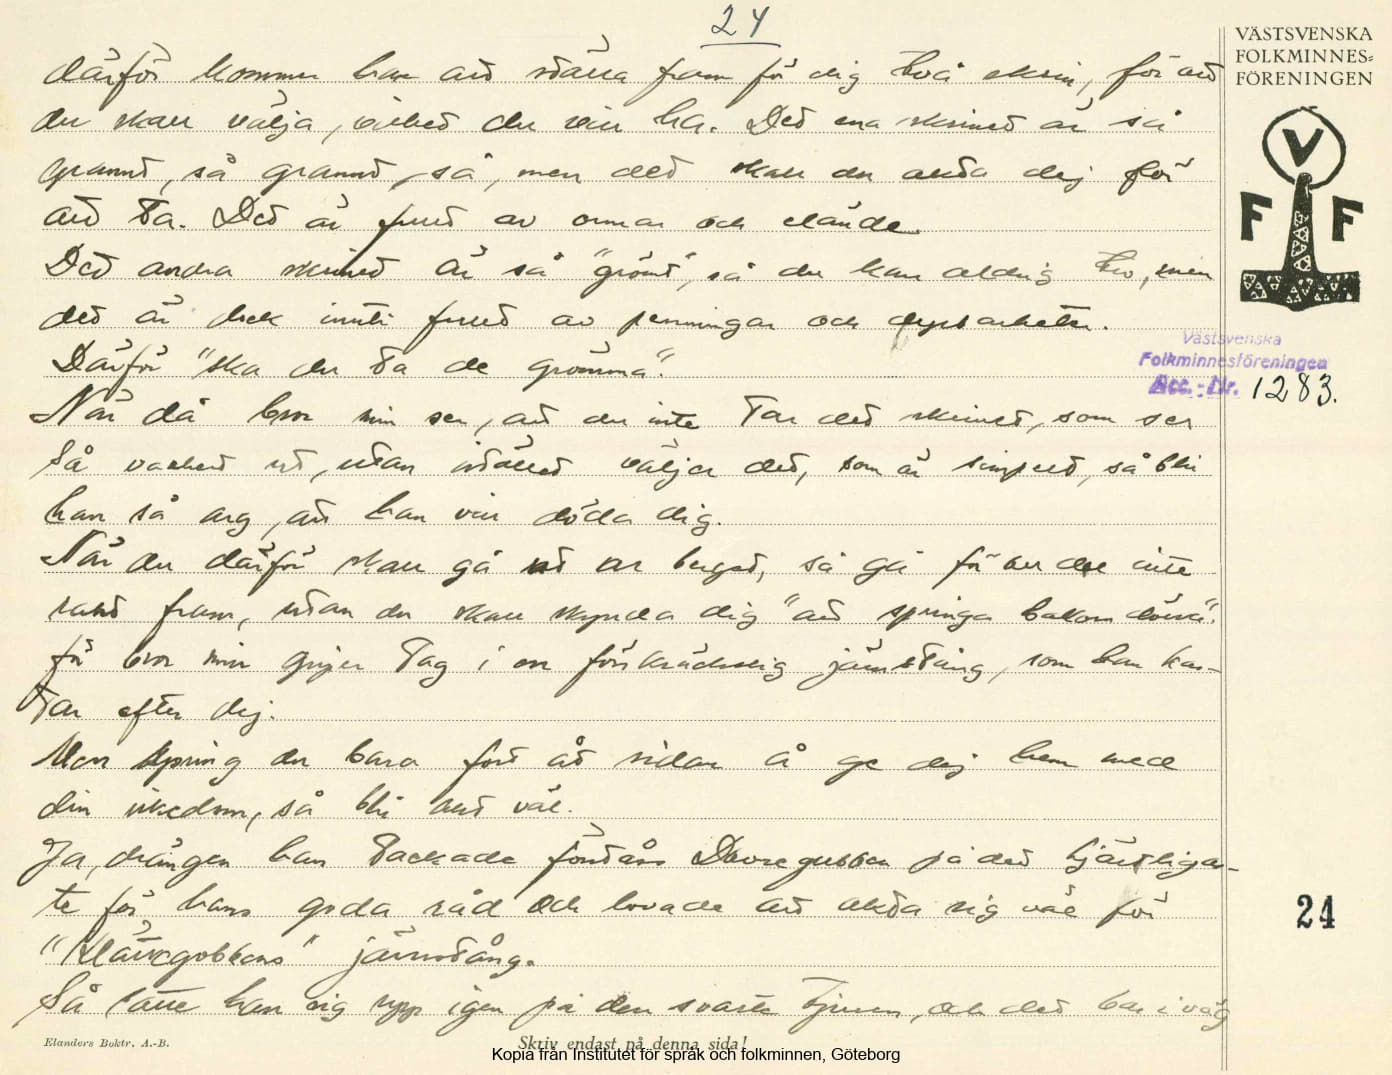 24
VÄSTSVENSKA
FOLKMINNES=
FÖRENINGEN
V
F F
därför kommer han att ställa fram för dig två skrin, för att
du skall välja, vilket du vill ha. Det ena skrinet är så
grannt, så grannt, så, men det skall du akta dej för
att ta. Det är fullt av ormar och elände.
Det andra skrinet är så "grömt", så du kan aldrig tro, men
det är dock inuti fullt av penningar och dyrbarheter.
Därför "ska du ta de grömma".
När då bror min ser, att du inte tar det skrinet, som ser
så vackert ut, utan istället väljer det, som är simpelt, så bli
han så arg, att han vill döda dig.
När du därför skall gå ut ur berget, så gå för all del inte
rakt fram, utan du skall skynda dig "att springa bakom dörra".
för bror min griper tag i en förskräcklig järnstång, som han kas-
tar efter dej.
Men spring du bara fort åt sidan å ge dej hem med
din rikedom, så bli allt väl.
Ja, drängen han tackade förstås Dovregubben på det hjärtliga-
te för hans goda råd och lovade att akta sig väl för
" järnstång.
Så satte han sig upp igen på den svarta tjuren, och det bar i väg
Västsvenska
Folkminnesföreningen
Acc.-Nr. 1283.
24
Elanders Boktr. A.-B.
Skriv endast på denna sida!
Kopia från Institutet för språk och folkminnen, Göteborg